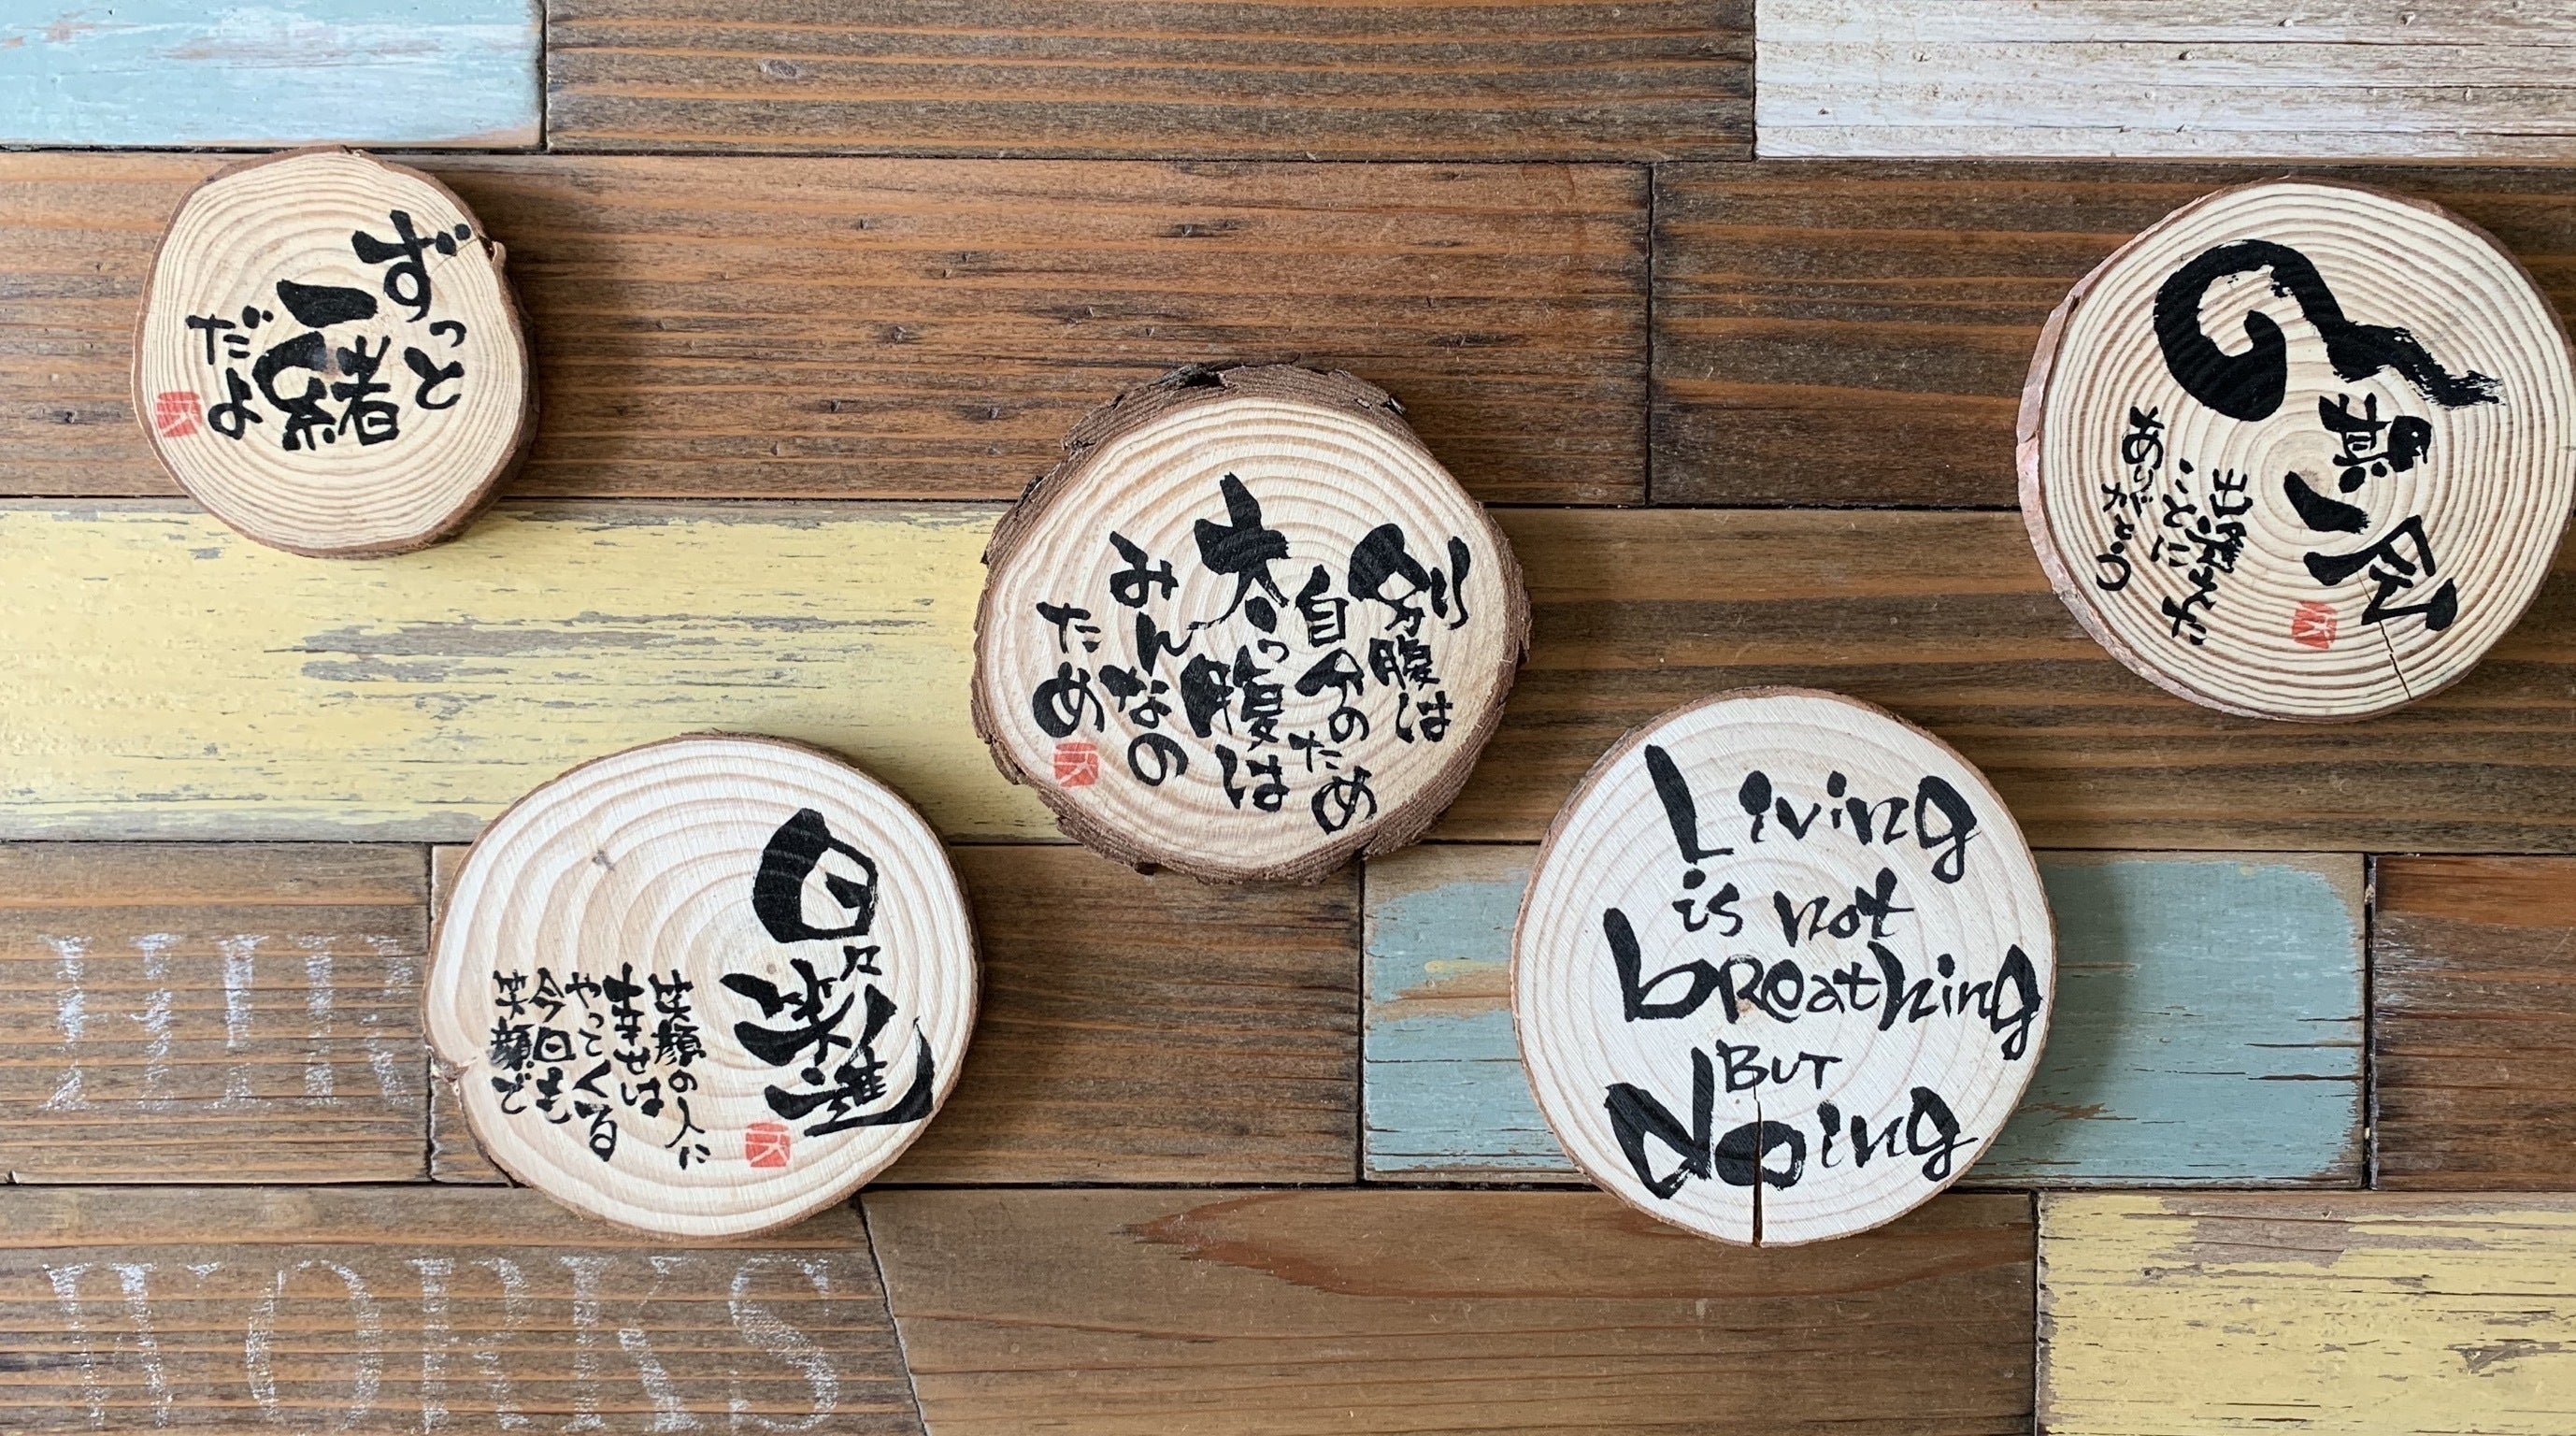 ずっと
一緒
だよ
別腹は
自分のため
太っ腹は
みんなの
ため
一期一会
出逢えた
ことに
ありがとう
日々笑進
笑顔の人に
幸せは
やってくる
今日も
笑顔で
Living
is not
bReathing
BUT
doing
WORKS